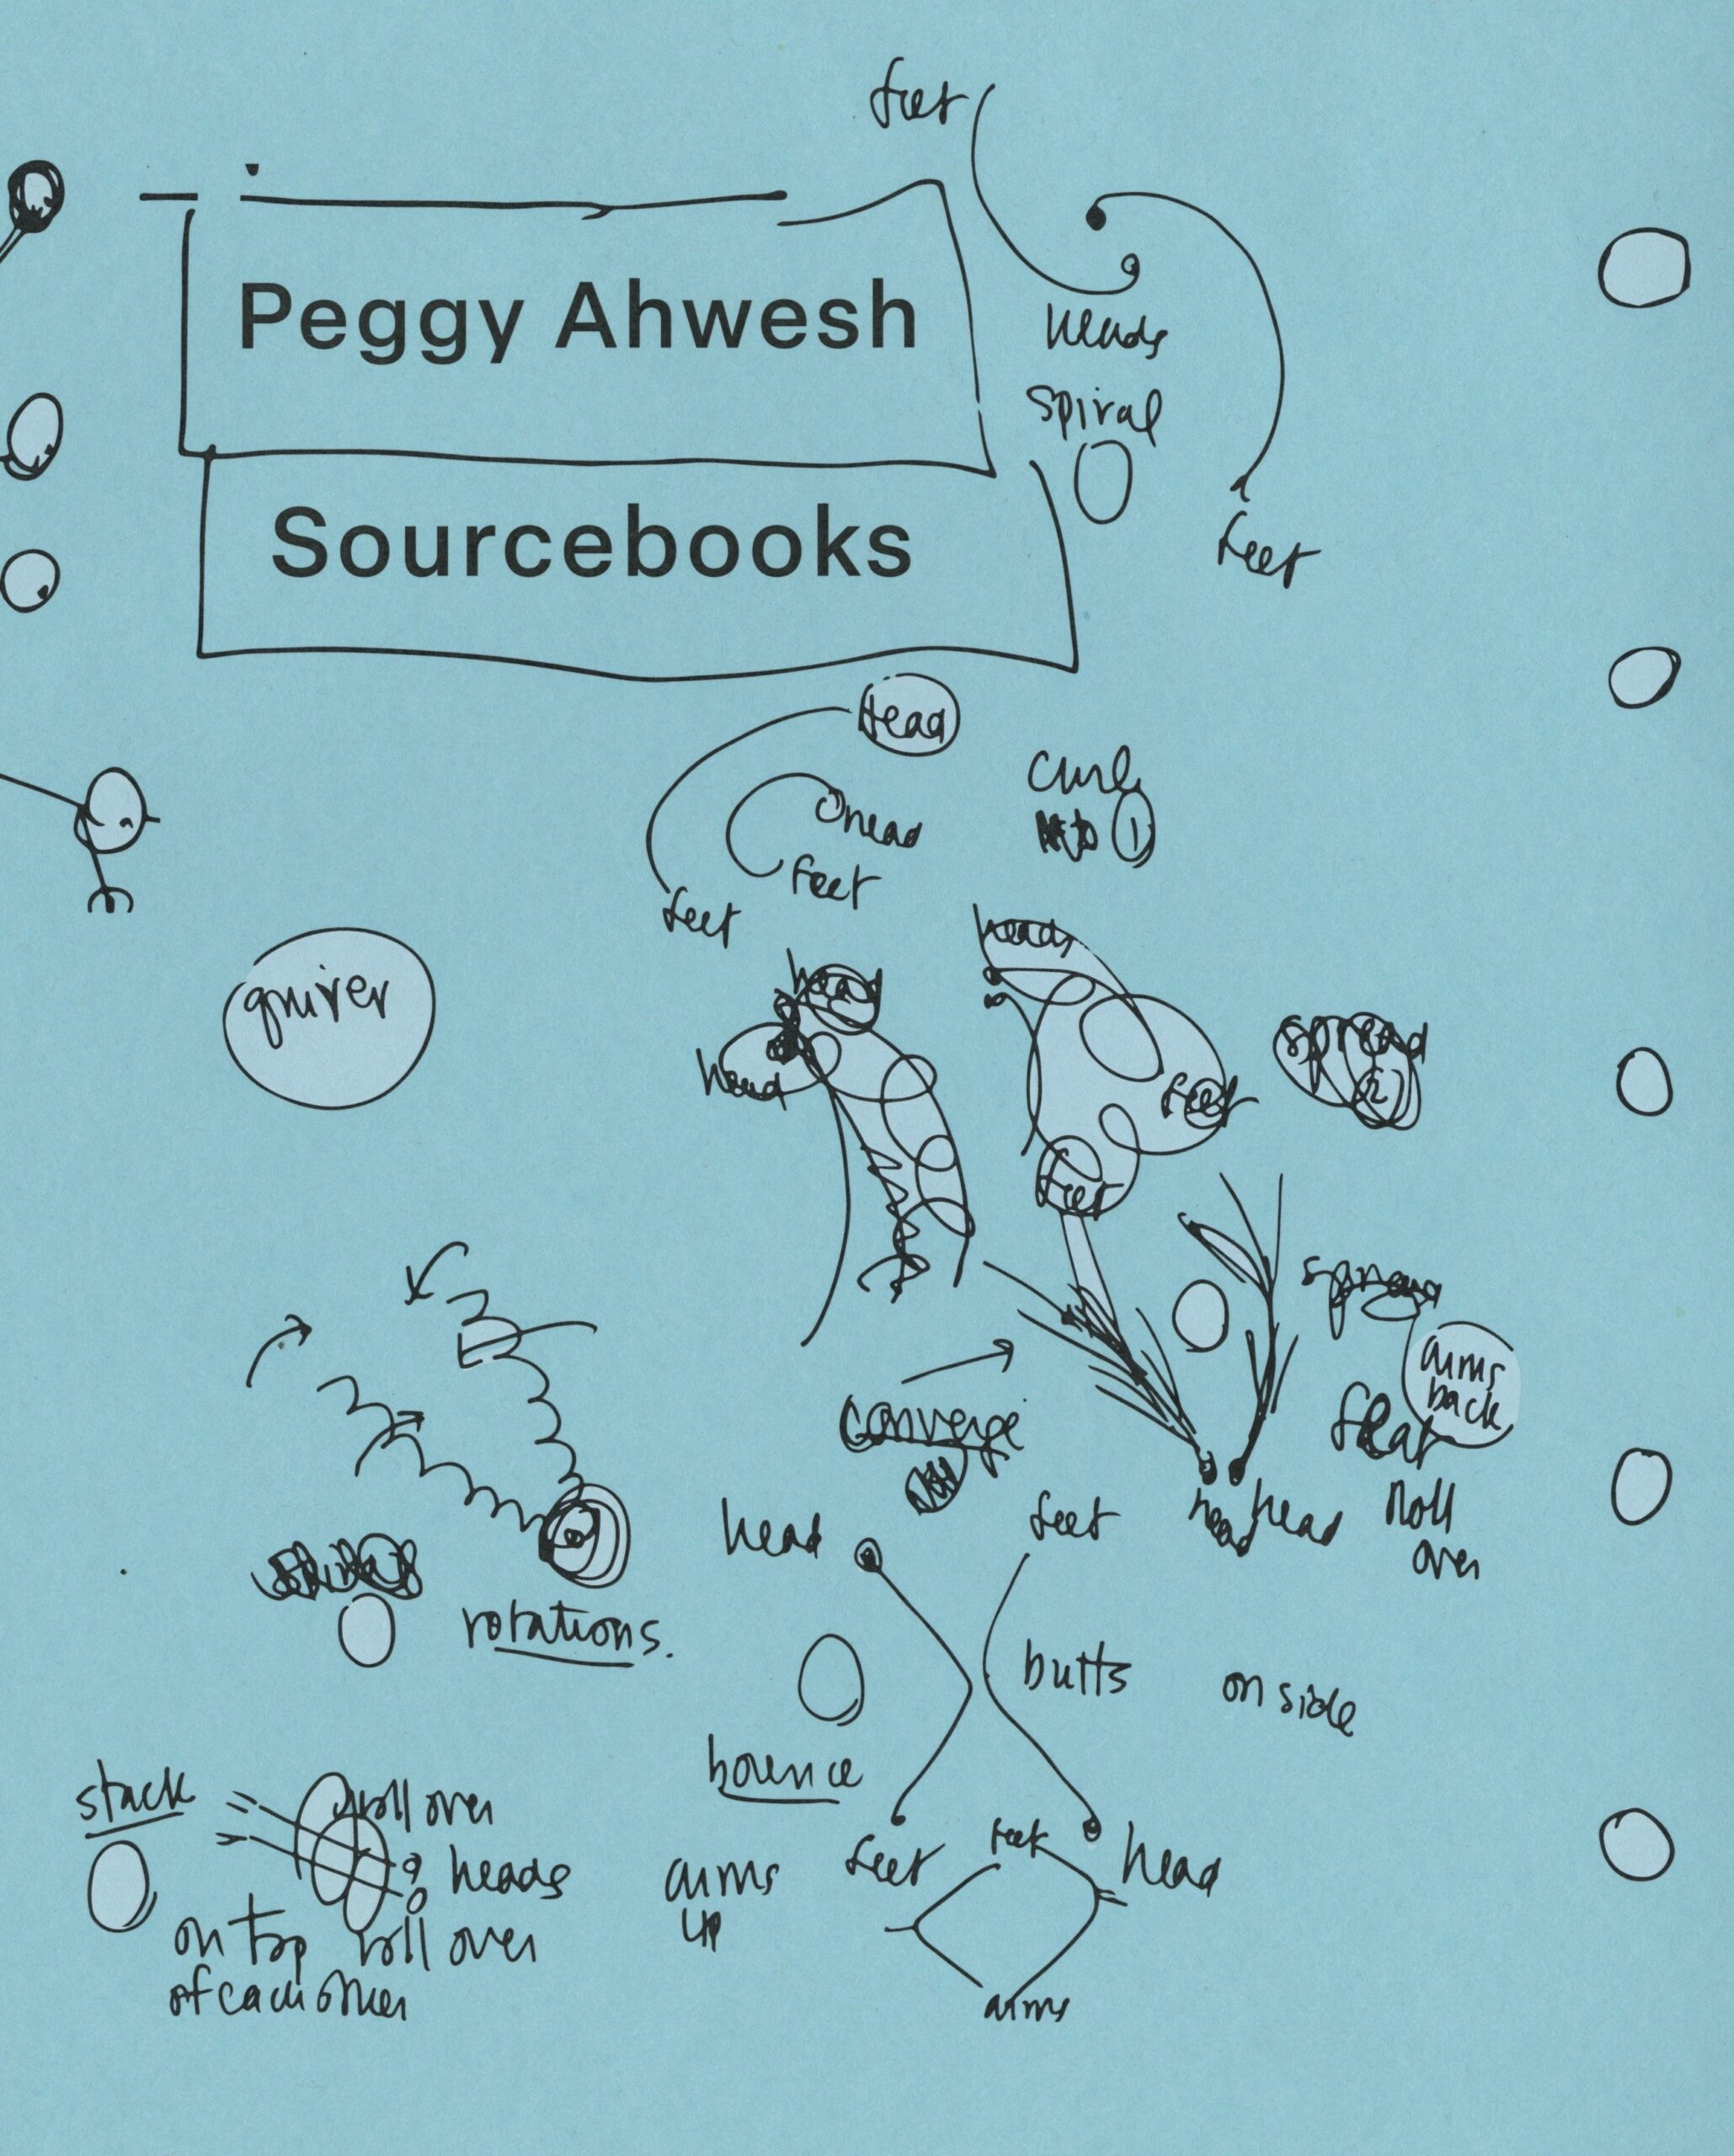 feet
Peggy Ahwesh
heads
spiral
Sourcebooks
feet
head
curl
head
feet
feet
heads
head
quiver
spread
head
feet
feet
spread
arms
back
converge
flat
feet
head
head head
roll
over
rotations.
butts
on side
bounce
stack
roll over
feet
feet
head
heads
arms
up
on top
roll over
of each other
arms